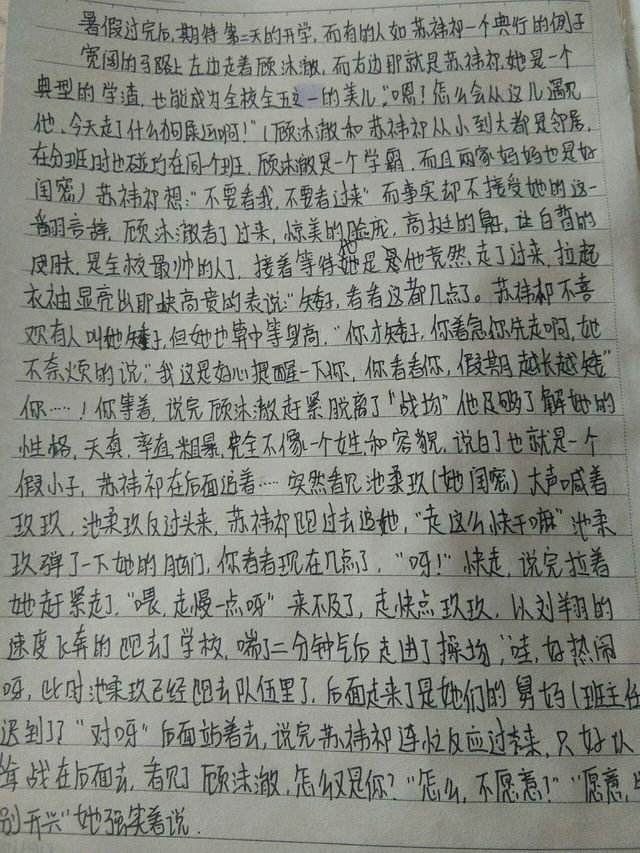 暑假过完后,期待第二天的开学,而有的人如苏祎祁一个典行的例子
宽阔的马路上左边走着顾沐澈,而右边那就是苏祎祁,她是一个
典型的学渣,也能成为全校全五之一的美儿,"嗯?怎么会从这儿遇见
他,今天走了什么狗屎运啊!"(顾沐澈和苏祎祁从小到大都是邻居,
在分班时也碰巧在同个班,顾沐澈是一个学霸,而且两家妈妈也是好
闺密)苏祎祁想:"不要看我,不要看过来"而事实却不接受她的这一
翻言辞,顾沐澈看了过来,惊美的脸庞,高挺的鼻,让白皙的
皮肤,是全校最帅的人了,接着等待她是 是他竟然走了过来,拉起
衣袖显亮出那块高贵的表说:"矮子,看看这都几点了。苏祎祁不喜
欢有人叫她矮子,但她也算中等身高,"你才矮子,你着急你先走啊,她
不奈烦的说,"我这是好心提醒一下你,你看看你,假期越长越矮"
你……!你等着,说完顾沐澈赶紧脱离了"战场"他足够了解她的
性格,天真,率直,粗暴,完全不像一个女生和容貌,说白了也就是一个
假小子,苏祎祁在后面追着……突然看见池柔玖(她闺密)大声喊着
玖玖,池柔玖反过头来,苏祎祁跑过去追她,"走这么快干嘛"池柔
玖弹了一下她的脑门,你看看现在几点了,"呀!"快走,说完拉着
她赶紧走了,"喂,走慢一点呀"来不及了,走快点玖玖,以刘翔的
速度飞奔的跑去了学校,喘了二分钟气后走进了操场,"哇,好热闹
呀,此时池柔玖已经跑去队伍里了,后面走来了是她们的舅妈(班主任
迟到了"对呀"后面站着去,说完苏祎祁连忙反应过来,只好认
战在后面去,看见了顾沐澈,怎么又是你?"怎么,不愿意?""愿意,
别开兴"她强笑着说.